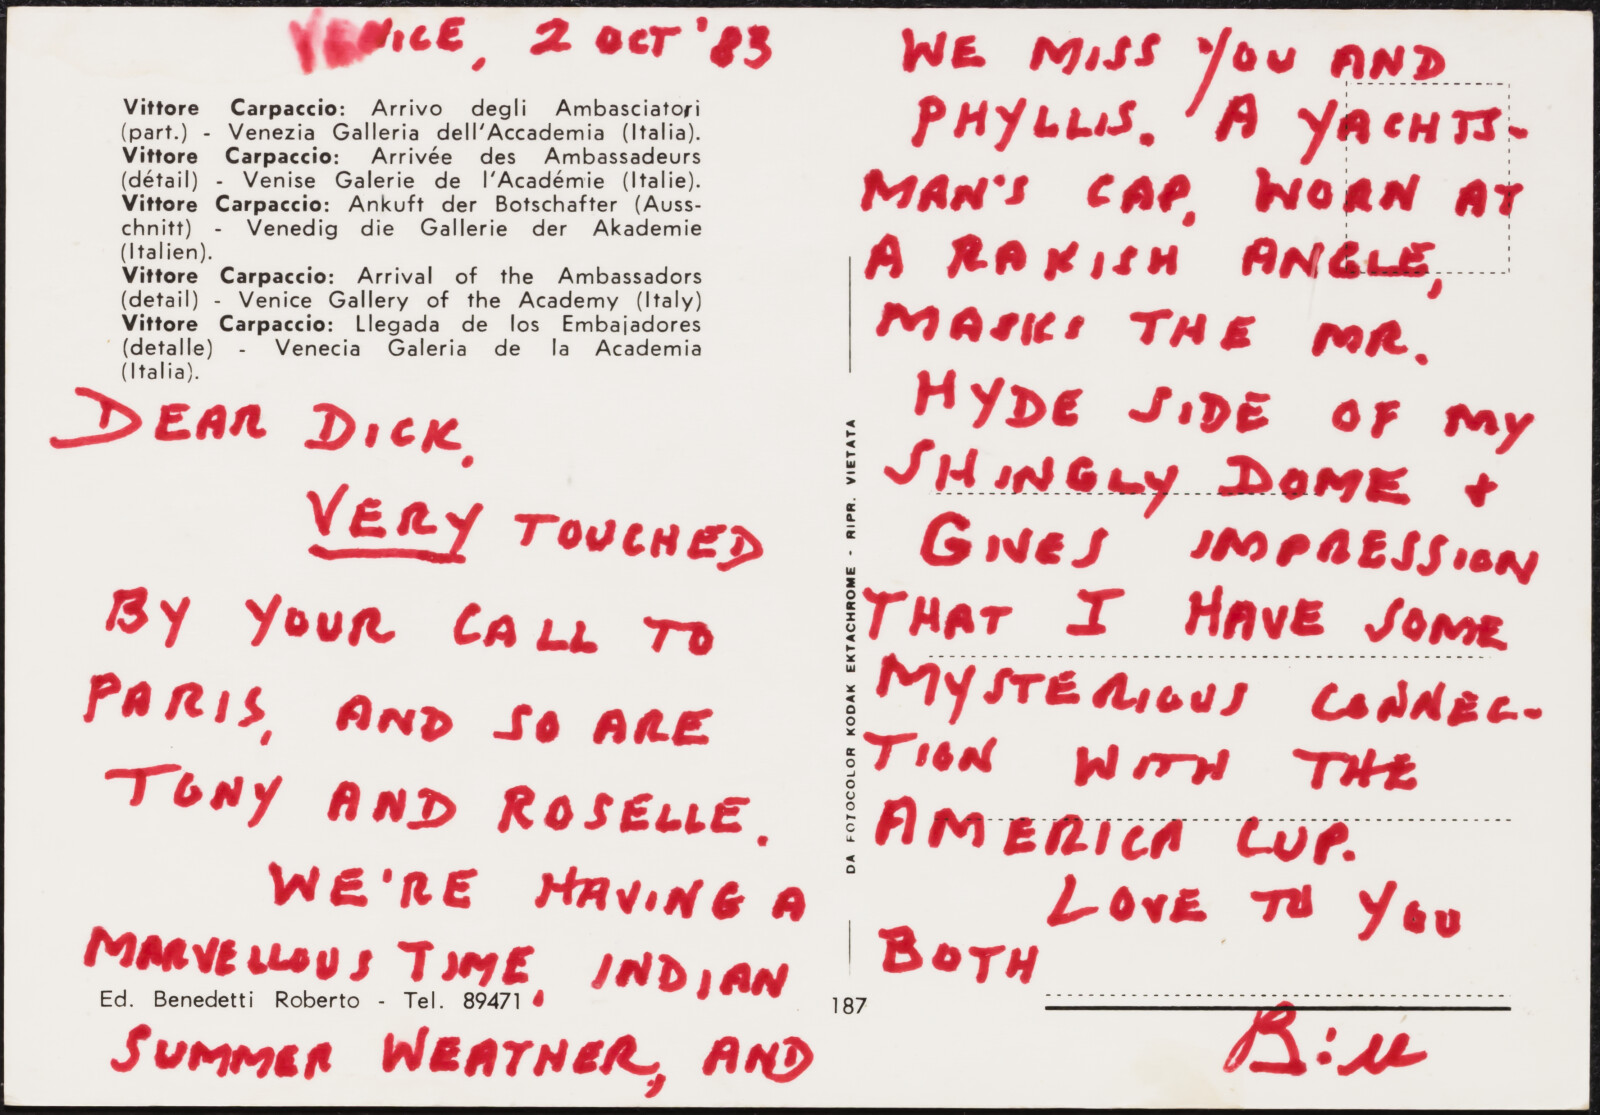 VENICE, 2 OCT '83
Vittore Carpaccio: Arrivo degli Ambasciatori
(part.) - Venezia Galleria dell'Accademia (Italia).
Vittore Carpaccio: Arrivée des Ambassadeurs
(détail) - Venise Galerie de l'Académie (Italie).
Vittore Carpaccio: Ankuft der Botschafter (Auss-
chnitt) - Venedig die Gallerie der Akademie
(Italien).
Vittore Carpaccio: Arrival of the Ambassadors
(detail) - Venice Gallery of the Academy (Italy)
Vittore Carpaccio: Llegada de los Embajadores
(detalle) - Venecia Galeria de la Academia
(Italia).
DEAR DICK,
VERY TOUCHED
BY YOUR CALL TO
PARIS, AND SO ARE
TONY AND ROSELLE.
WE'RE HAVING A
MARVELLOUS TIME, INDIAN
Ed. Benedetti Roberto - Tel. 89471
SUMMER WEATHER, AND
DA FOTOCOLOR KODAK EKTACHROME - RIPR. VIETATA
187
WE MISS YOU AND
PHYLLIS. A YACHTS-
MAN'S CAP, WORN AT
A RAKISH ANGLE,
MASKS THE MR.
HYDE SIDE OF MY
SHINGLY DOME +
GIVES IMPRESSION
THAT I HAVE SOME
MYSTERIOUS CONNEC-
TION WITH THE
AMERICA CUP.
LOVE TO YOU
BOTH
Bill